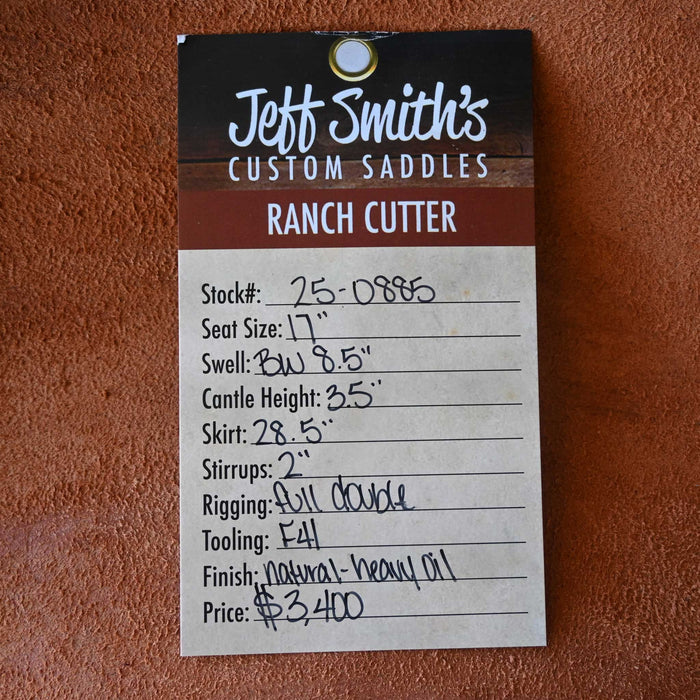 Jeff Smith's
CUSTOM SADDLES
RANCH CUTTER
Stock#: 25-0885
Seat Size: 17"
Swell: BW 8.5"
Cantle Height: 3.5"
Skirt: 28.5"
Stirrups: 2"
Rigging: full double
Tooling: F41
Finish: natural-heavy oil
Price: $3,400